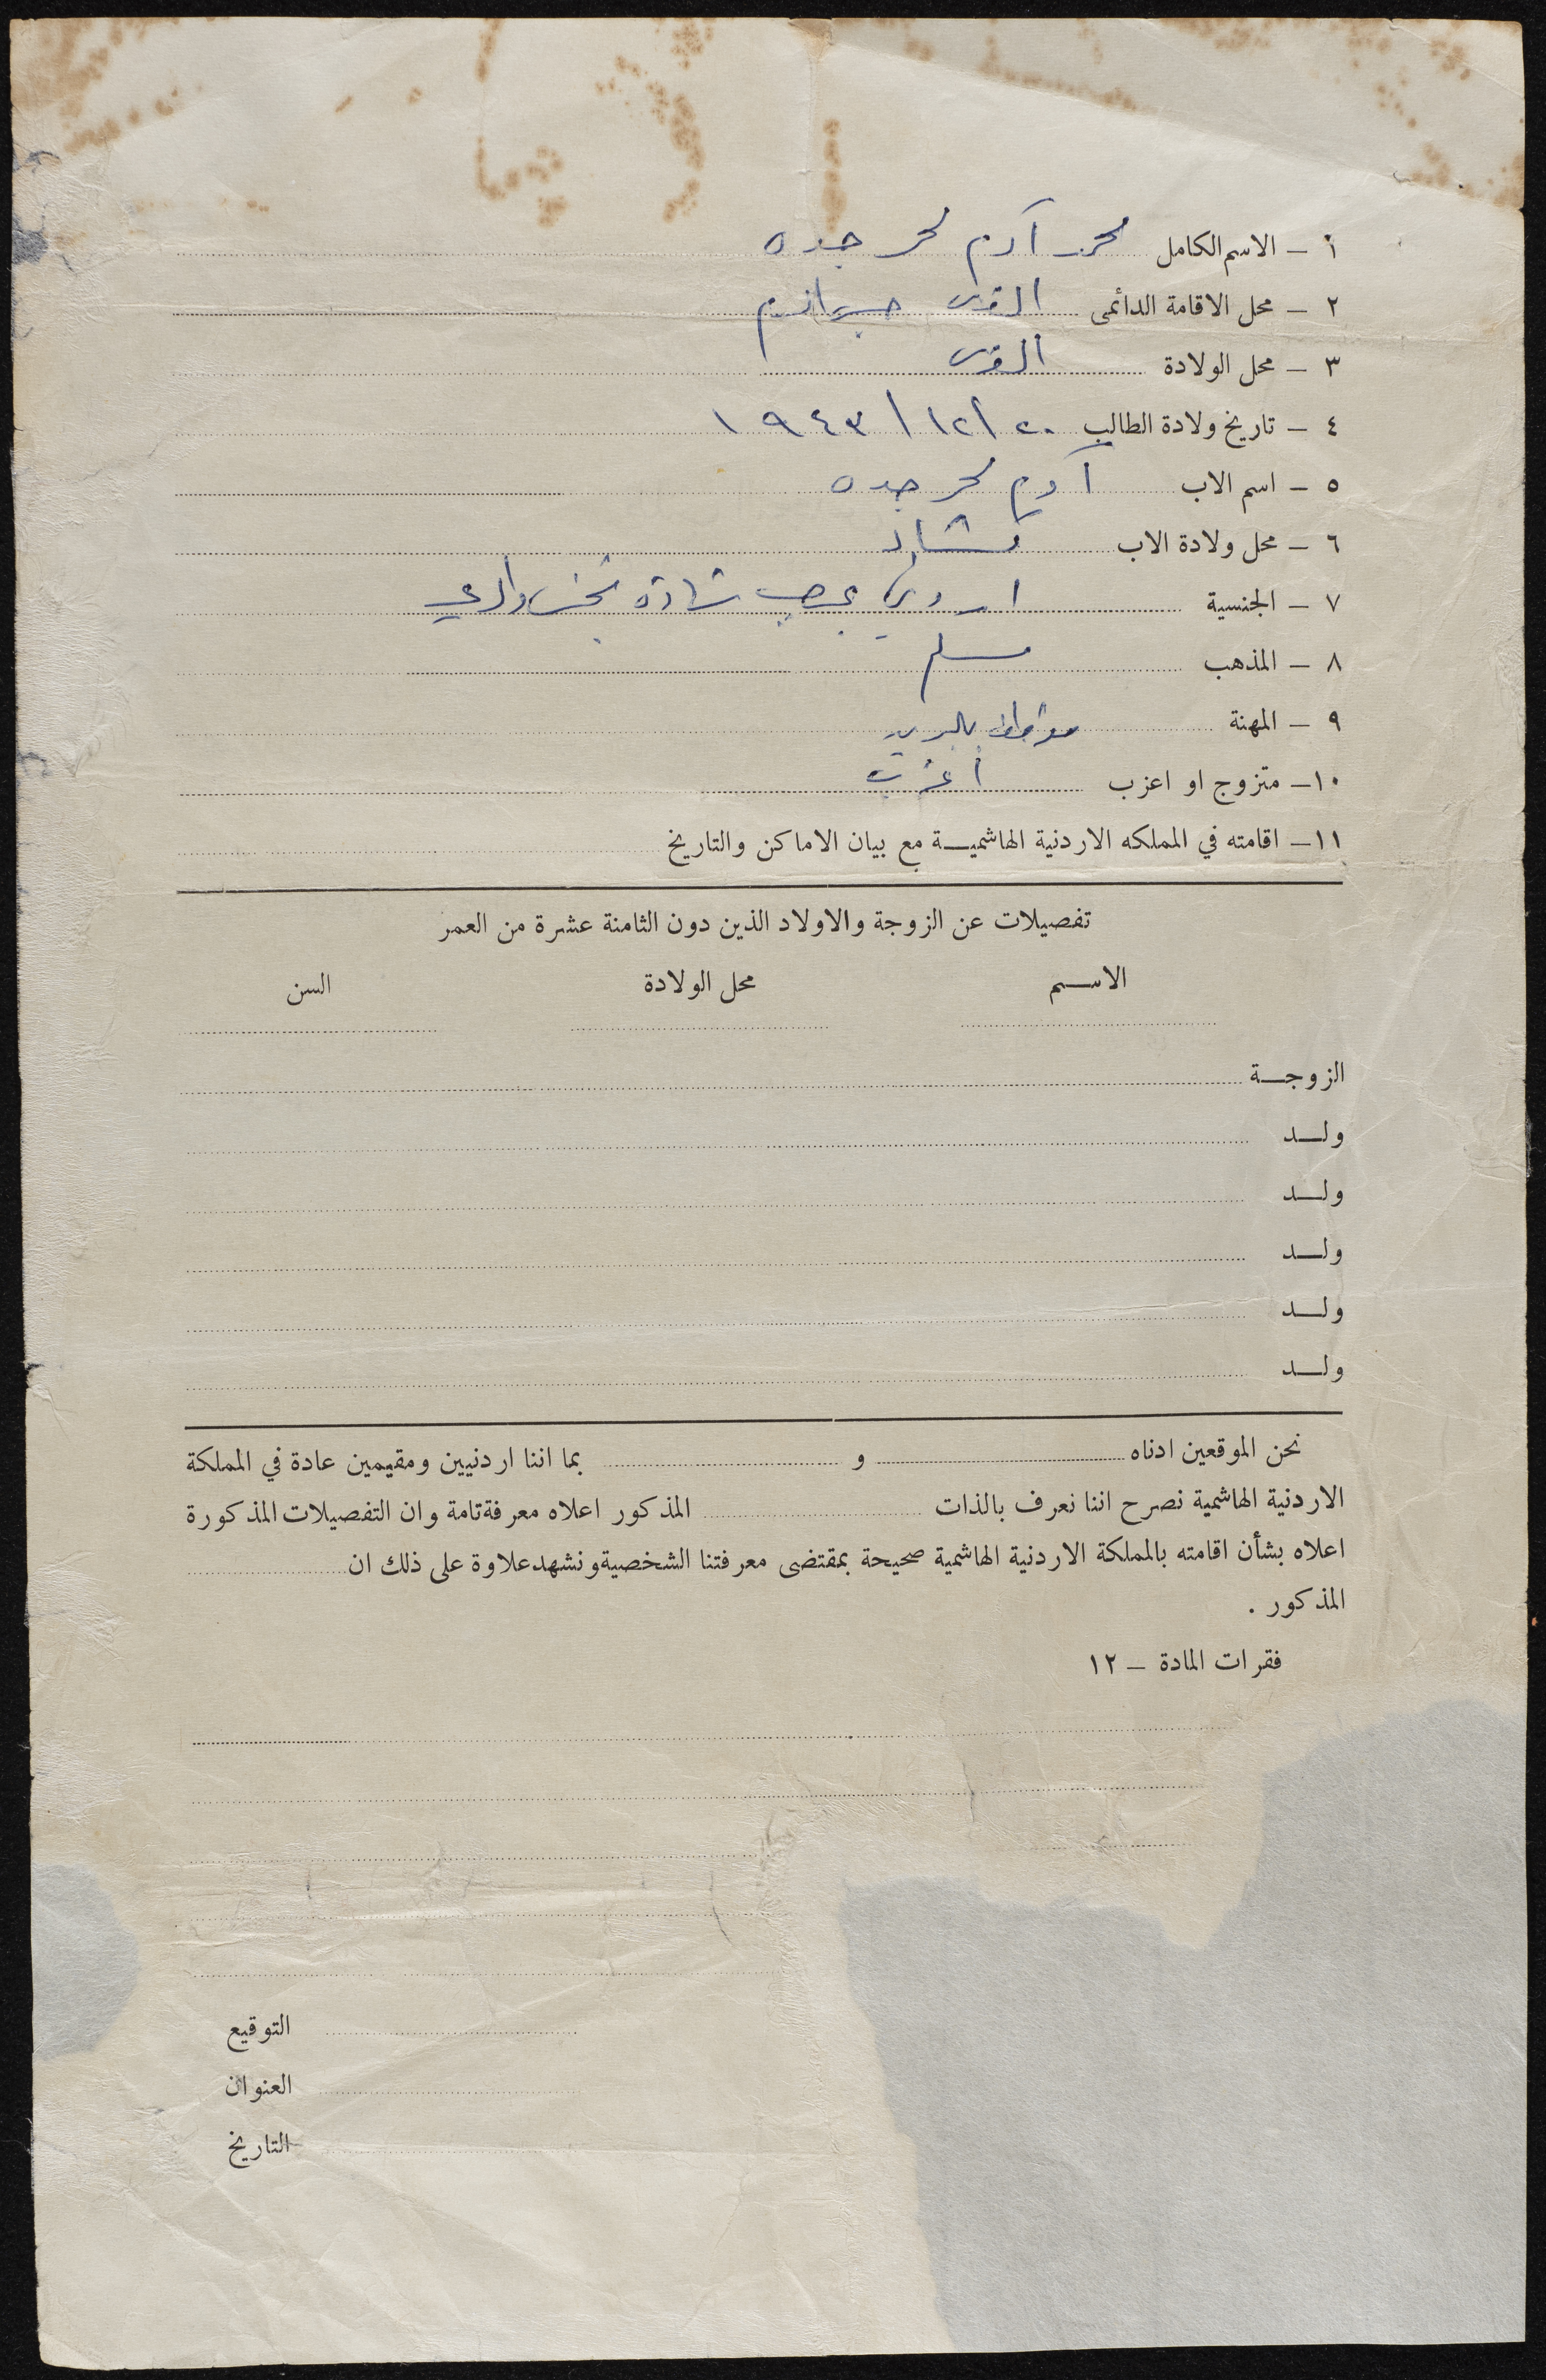 ١ - الاسم الكامل محمد آدم محمد جده
٢ - محل الاقامة الدائمى القدس
٣ - محل الولادة القدس
٤ - تاريخ ولادة الطالب ٢٠/١٢/١٩٤٣
٥ - اسم الاب آدم محمد جده
٦ - محل ولادة الاب تشاد
٧ - الجنسية اردني بموجب شهادة تجنس والدي
٨ - المذهب مسلم
٩ - المهنة موظف بالبريد
١٠ - متزوج او اعزب أعزب
١١ - اقامته في المملكه الاردنية الهاشميــة مع بيان الاماكن والتاريخ
تفصيلات عن الزوجة والاولاد الذين دون الثامنة عشرة من العمر
الاســم محل الولادة السن
الزوجــة
ولــد
ولــد
ولــد
ولــد
ولــد
نحن الموقعين ادناه و بما اننا اردنيين ومقيمين عادة في المملكة
الاردنية الهاشمية نصرح اننا نعرف بالذات المذكور اعلاه معرفة تامة وان التفصيلات المذكورة
اعلاه بشأن اقامته بالمملكة الاردنية الهاشمية صحيحة بمقتضى معرفتنا الشخصية ونشهد علاوة على ذلك ان
المذكور .
فقرات المادة - ١٢
التوقيع
العنوان
التاريخ